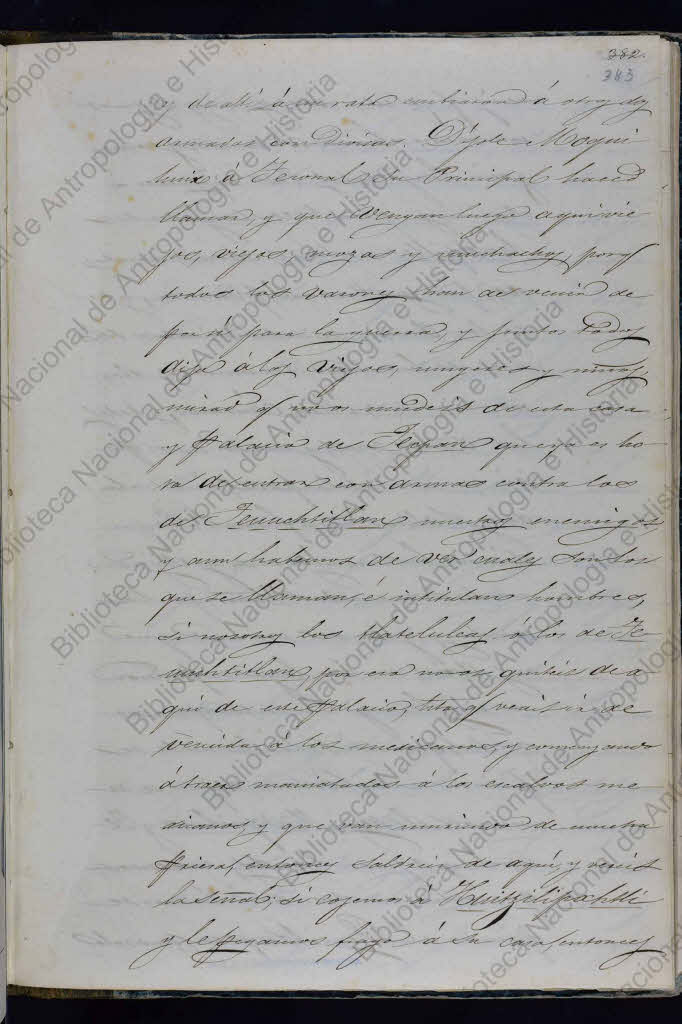 382.
383
y de alli á un rato embiaron á otros dos
armados con Divisas. Dijole Moqui
huix á Teconal su Principal haced
llamar, y que vengan luego aqui vie
jos, viejas, mozas y muchachos, porq
todos los varones han de venir de
por si para la guerra, y juntos todos
dijo á los viejos, mugeres y mozas,
mirad q no os mudeis de esta casa
y Palacio de Tecpan que ya es ho
ra de entrar con armas contra los
de Tenuchtitlan nuestros enemigos,
y aun habemos de ver cuales son los
que se llaman, é intitulan hombres,
si nosotros los tlatelulcas, ó los de Te
nuchtitlan, por eso no os quiteis de a
qui de este Palacio, hta q veais ir de
vencida á los mexicanos, y comenzando
á traer maniatados á los esclavos me
xicanos, y que van muriendo de nuestra
fuerza, entonces saldreis de aquí, y vereis
la señal; si cojemos á Huitzilipochtli
y le pegamos fuego á su casa entonces
Biblioteca Nacional de Antropología e Historia